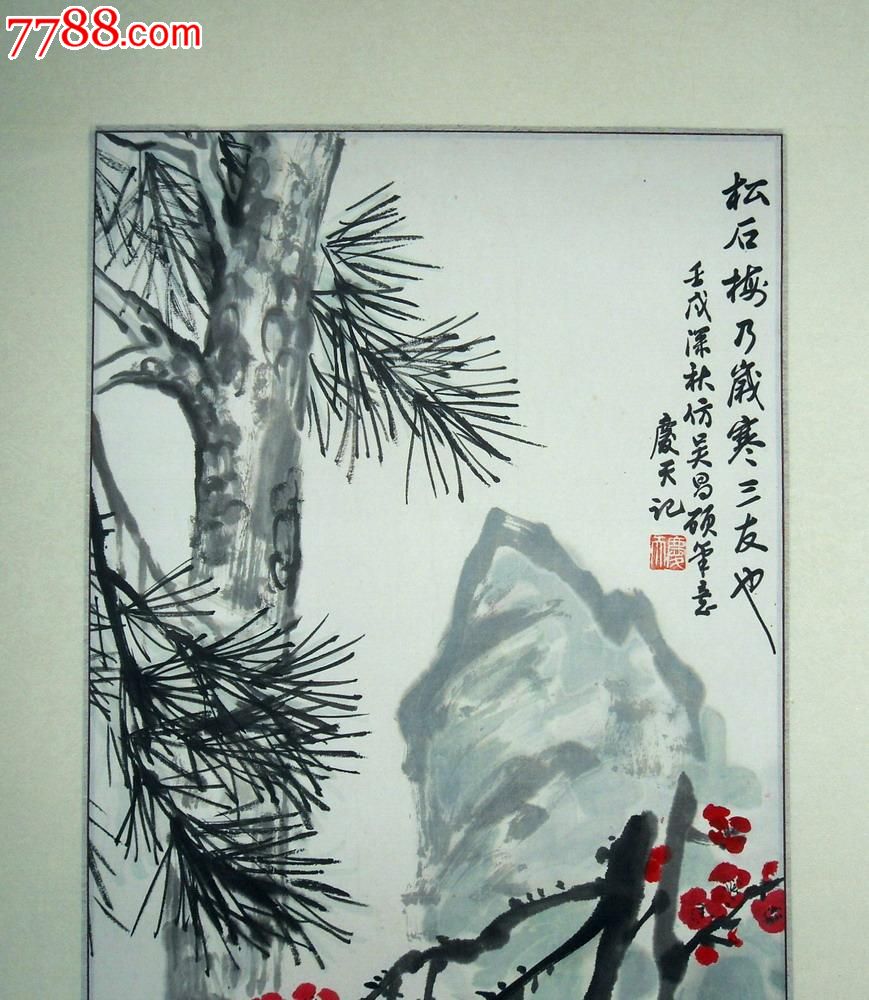 7788.com
松石梅乃歲寒三友也
壬戌深秋仿吴昌碩筆意
慶天记
慶天